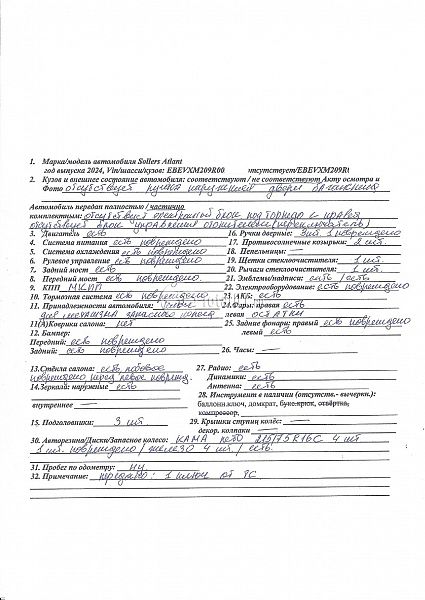 1. Марка/модель автомобиля Sollers Atlant
год выпуска 2024, Vin/шасси/кузов: EBEVXM209R00 /отсутствует/EBEVXM209R
2. Кузов и внешнее состояние автомобиля: соответствуют / не соответствуют Акту осмотра и
Фото отсутствует ручка наружной двери багажника
Автомобиль передан полностью / частично
комплектным: отсутствует электронный блок
отсутствует блок управления отопителем (переключатель)
3. Двигатель есть
4. Система питания есть повреждено
5. Система охлаждения есть повреждено
6. Рулевое управление есть повреждено
7. Задний мост есть
8. Передний мост есть повреждено.
9. КПП МКПП
10. Тормозная система есть повреждено
11. Принадлежности автомобиля:
для механизма запасного колеса
11(А) Коврики салона: нет
12. Бампер:
Передний: есть повреждено
Задний: есть повреждено
13. Стёкла салона: есть, лобовое
повреждено, перед левое поврежд.
14. Зеркала: наружные есть
внутреннее —
15. Подголовники: 3 шт
16. Ручки дверные: 3шт. 1 повреждено
17. Противосолнечные козырьки: 2 шт.
18. Пепельницы: —
19. Щетки стеклоочистителя: 1 шт.
20. Рычаги стеклоочистителя: 1 шт.
21. Эмблемы/надписи: есть / есть
22. Электрооборудование: есть повреждено
23. АКБ: есть
24. Фары: правая есть
левая остатки
25. Задние фонари: правый есть повреждено
левый есть
26. Часы: —
27. Радио: есть
Динамики: есть
Антенна: есть
28. Инструмент в наличии (отсутств.- вычеркн.):
баллонн.ключ, домкрат, букс.крюк, отвёртка,
компрессор,
29. Крышки ступиц колёс: —
декор. колпаки —
30. Авторезина/Диски/Запасное колесо: КАМА лето 215/75 R16C 4 шт
1 шт. повреждено / железо 4 шт. / есть.
31. Пробег по одометру: н/у
32. Примечание: передано: 1 ключ от ТС